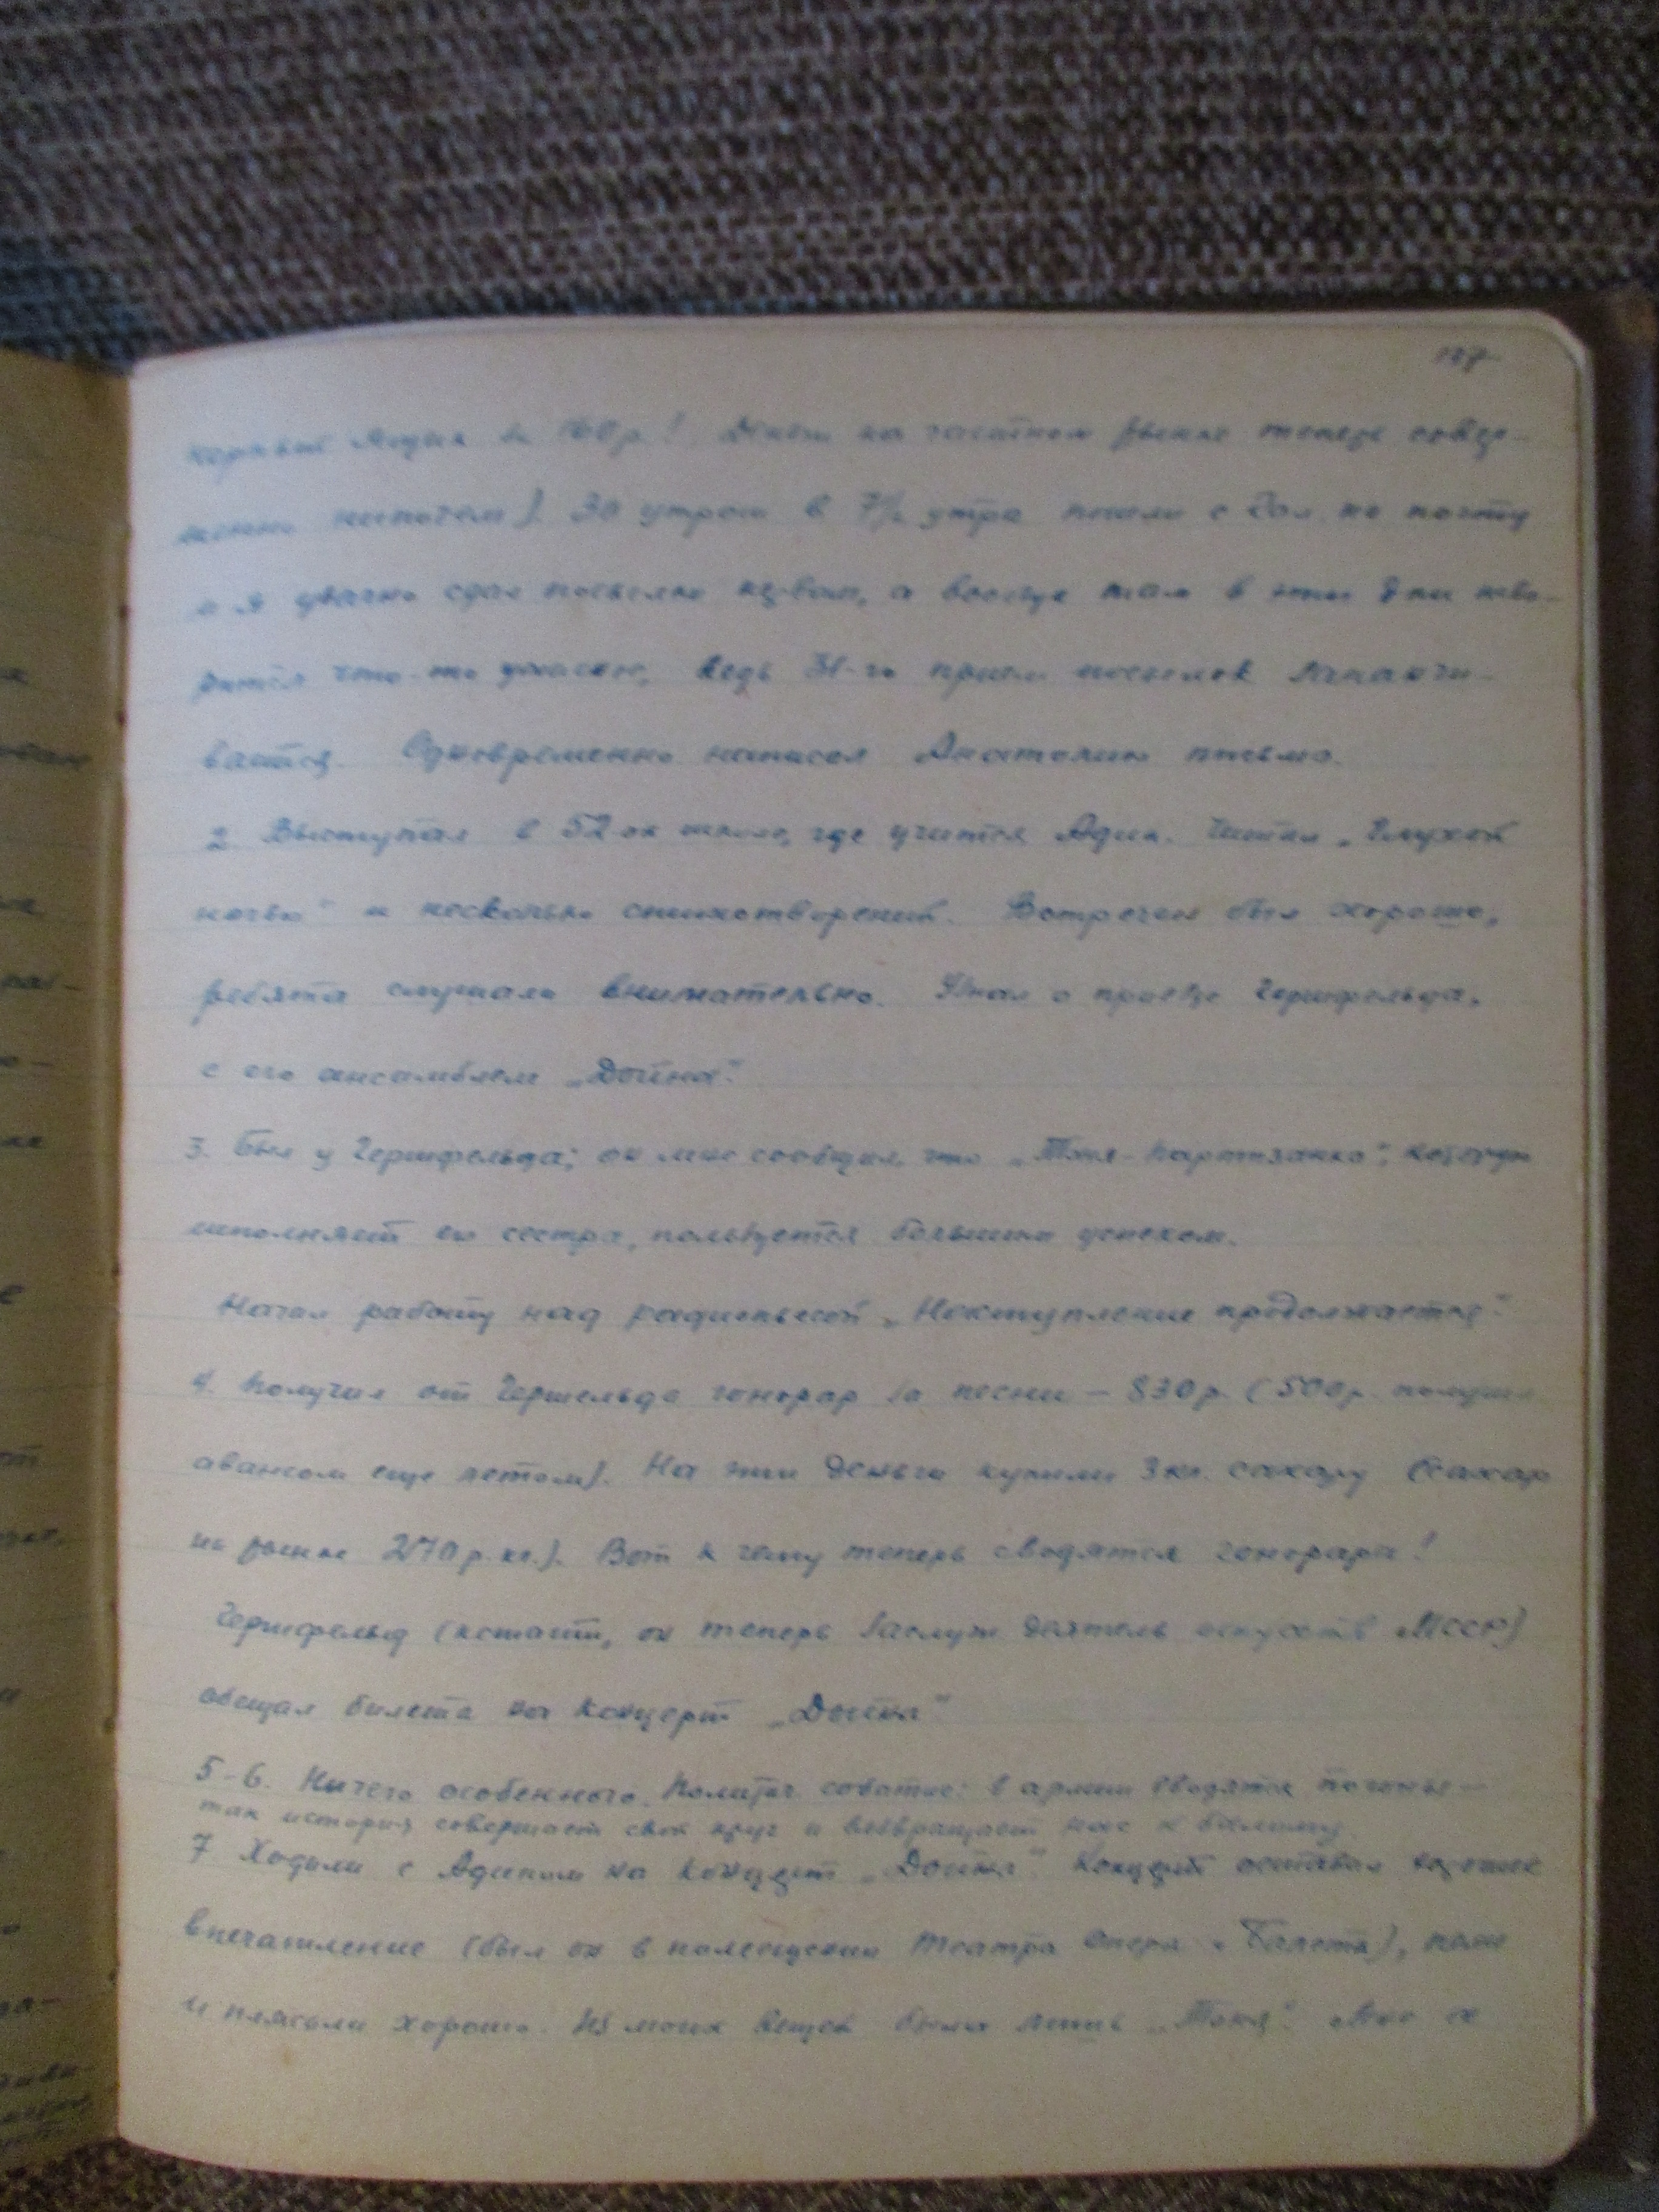 127
ящик за 160 р.! Деньги на частном рынке теперь совер-
шенно нипочем). 30 утром в 7½ утра пошли с Гал. на почту
и я удачно сдал посылку первым, а вообще там в эти дни тво-
рится что-то ужасное, ведь 31-го прием посылок заканчи-
вается. Одновременно написал Анатолию письмо.
2. Выступал в 52-ой школе, где учится Адик. Читал „Глухой
ночью" и несколько стихотворений. Встречен был хорошо,
ребята слушали внимательно. Узнал о приезде Гершфельда,
с его ансамблем „Дойна".
3. Был у Гершфельда; он мне сообщил, что „Тоня-партизанка", которую
исполняет его сестра, пользуется большим успехом.
Начал работу над радиопьесой „Наступление продолжается".
4. Получил от Гершельда гонорар за песни – 830 р. (500 р. получил
авансом еще летом). На эти деньги купили 3 кг. сахару (сахар
на рынке 270 р. кг.). Вот к чему теперь сводятся гонорары!
Гершфельд (кстати, он теперь заслуж деятель искусств МССР)
обещал билеты на концерт „Дойна"
5-6. Ничего особенного. Политич. событие: в армии вводятся погоны –
так история совершает свой круг и возвращает нас к былому.
7. Ходили с Адиком на концерт „Дойна". Концерт оставил хорошее
впечатление (был он в помещении Театра Оперы и Балета), пели
и плясали хорошо. Из моих вещей была лишь „Тоня". Мне